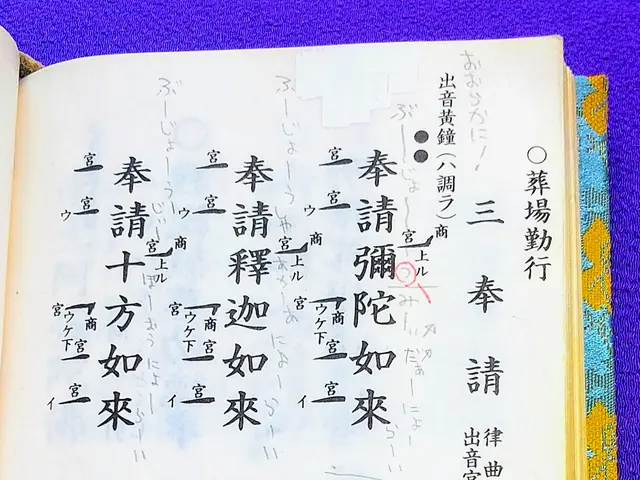 ○葬場勤行
三奉請
律曲
出音宮
出音黄鐘(ハ調ラ)
おおらかに!
●●
奉請彌陀如來
宮
宮
商
宮
上ル
宮
商
ウケ下
宮
宮
イ
ぶーじょー
奉請釋迦如來
宮
宮
ウ
商
宮
上ル
宮
商
ウケ下
宮
宮
イ
ぶーじょーう
にょーらーい
奉請十方如來
宮
宮
ウ
商
宮
上ル
宮
商
ウケ下
宮
宮
イ
ぶーじょーう
にょーらーい